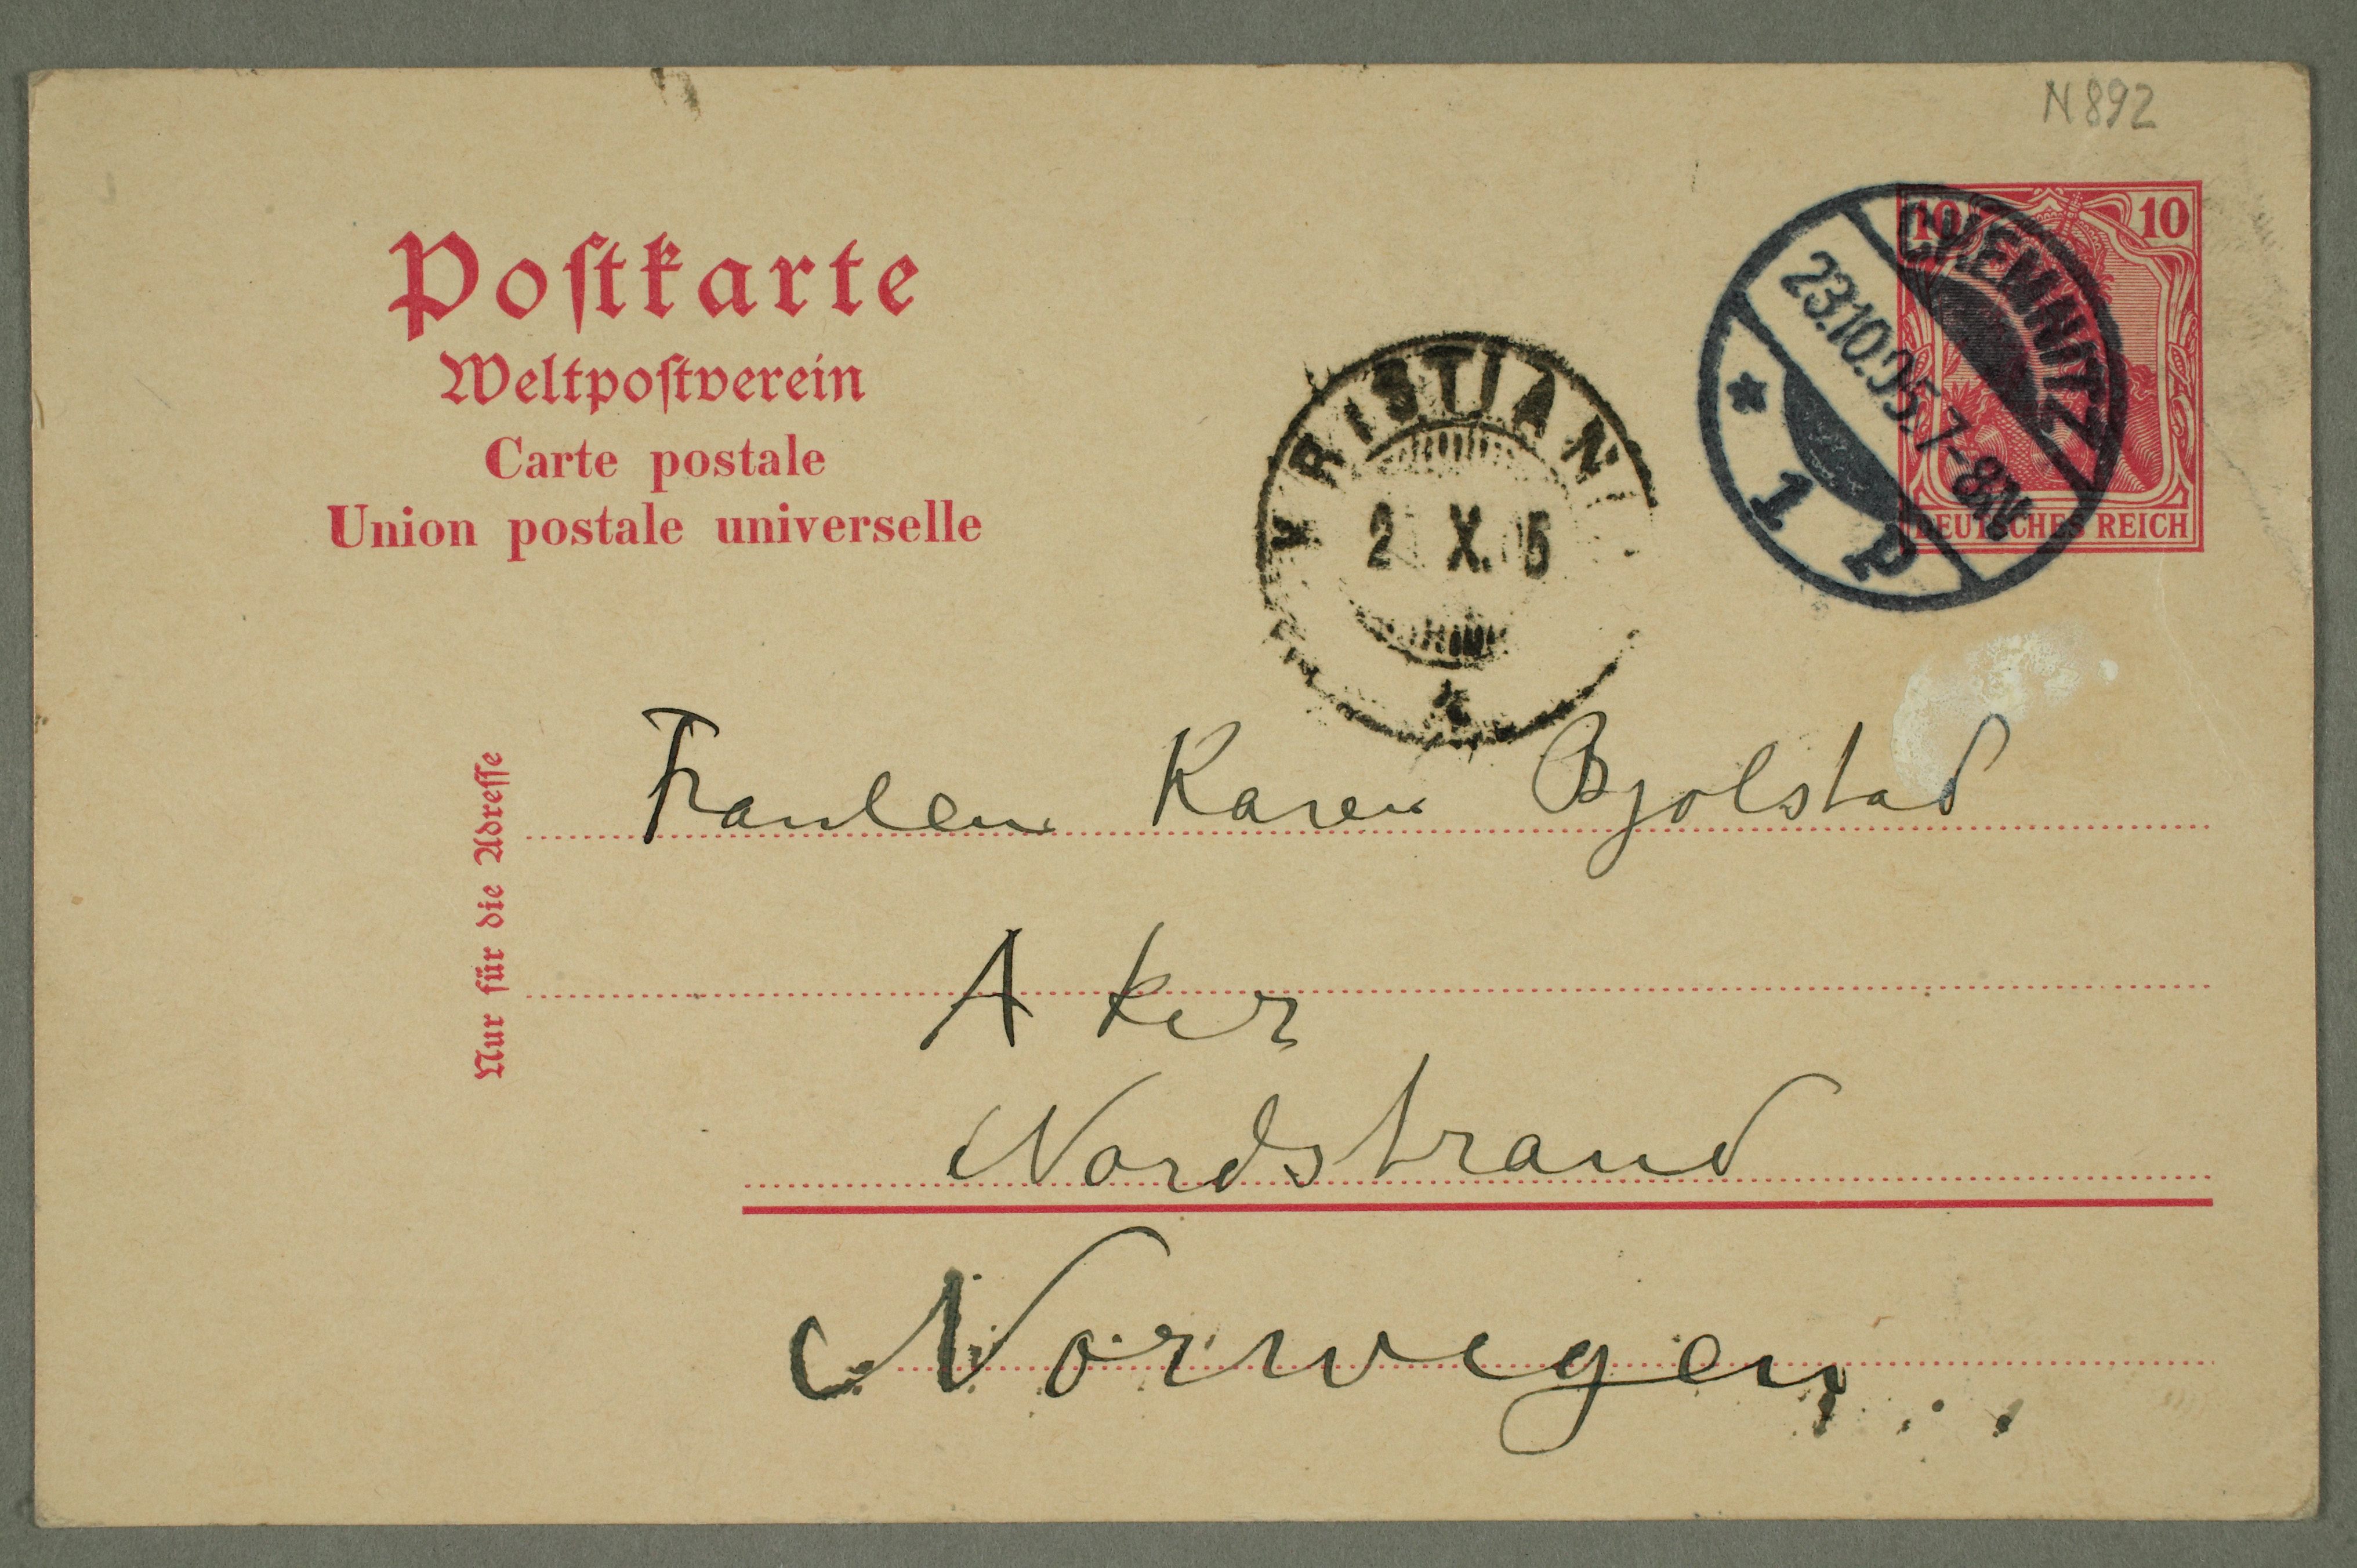 N892
Postkarte
Weltpostverein
Carte postale
Union postale universelle
10 10
DEUTSCHES REICH
CHEMNITZ
23.10.05. 7-8N
* 1 P
KRISTIANI
X. 5
Nur für die Adresse
Fraulen Karen Bjolstad
Aker
Nordstrand
Norwegen